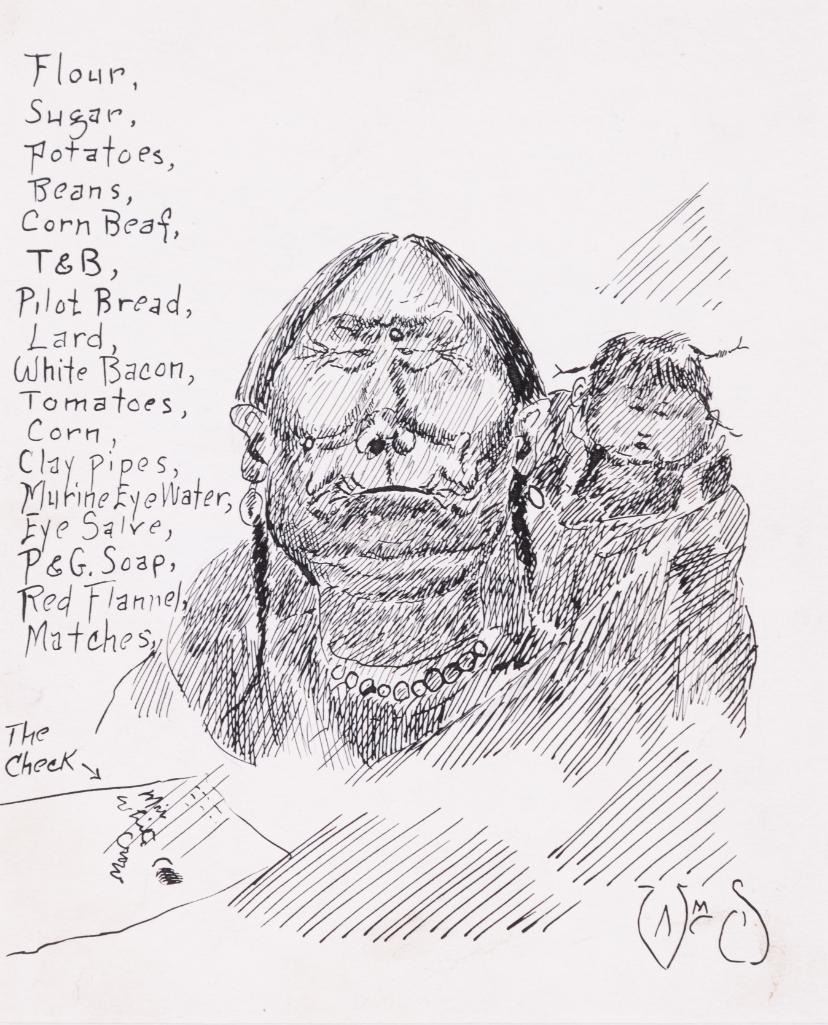 Flour,
Sugar,
Potatoes,
Beans,
Corn Beaf,
T&B,
Pilot Bread,
Lard,
White Bacon,
Tomatoes,
Corn,
Clay pipes,
Murine Eye Water,
Eye Salve,
P&G. Soap,
Red Flannel,
Matches,
The
Check